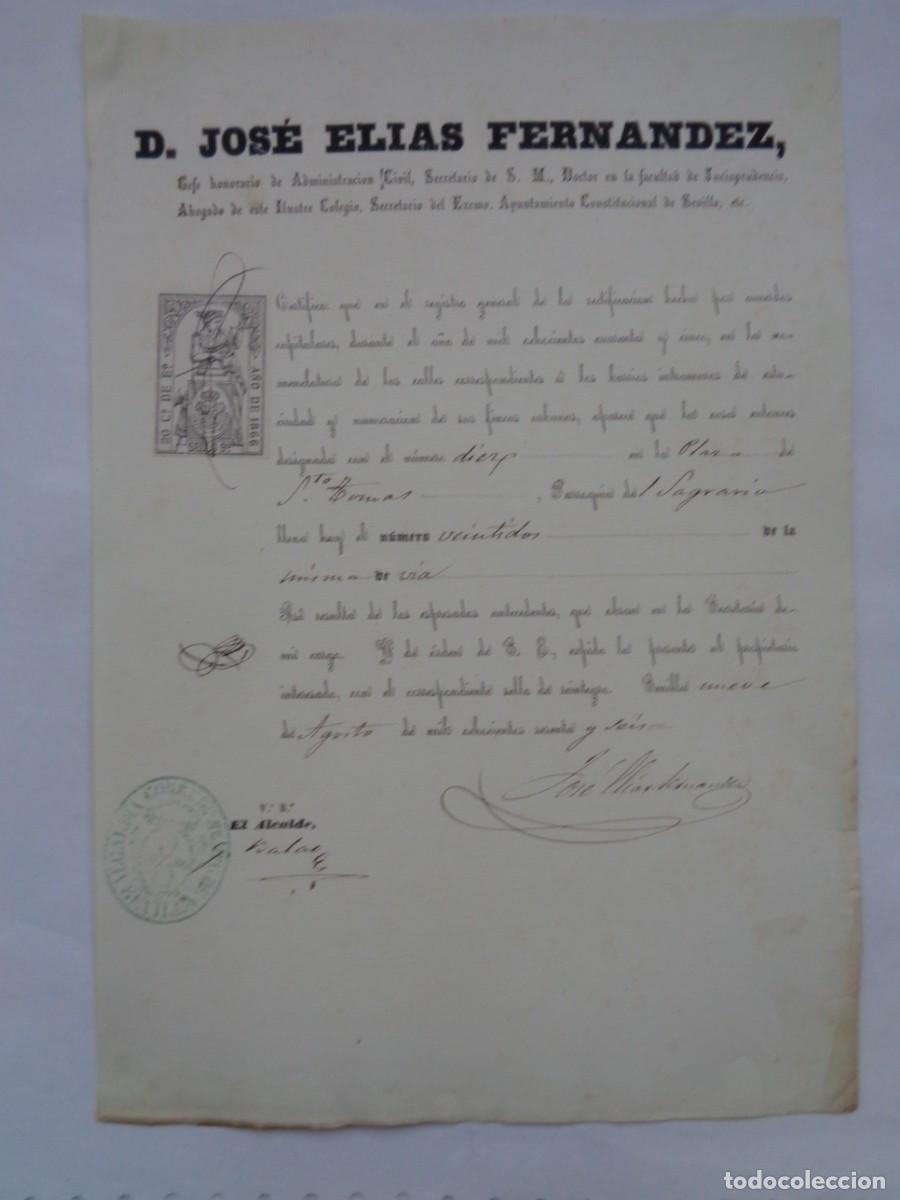 D. JOSÉ ELIAS FERNANDEZ,
Gefe honorario de Administracion Civil, Secretario de S. M., Doctor en la facultad de Jurisprudencia,
Abogado de este Ilustre Colegio, Secretario del Excmo. Ayuntamiento Constitucional de Sevilla, etc.
20 Cs. DE Eº
AÑO DE 1866
Certifico: que en el registro general de la rectificacion hecha por acuerdos
capitulares, durante el año de mil ochocientos cuarenta y cinco, en la no-
menclatura de las calles correspondientes á los barrios intramuros de esta
ciudad y numeracion de sus fincas urbanas, aparece que la casa entonces
designada con el número diez en la Plaza de
Sto. Tomas, Parroquia del Sagrario
lleva hoy el número veintidos de la
misma de via
Así resulta de los espresados antecedentes, que obran en la Secretaría de
mi cargo. Y de órden de S. E., espido la presente al propietario
interesado, con el correspondiente sello de reintegro. Sevilla nueve
de Agosto de mil ochocientos sesenta y seis
José Elias Fernandez
V.º B.º
El Alcalde,
SEVILLA
todocoleccion